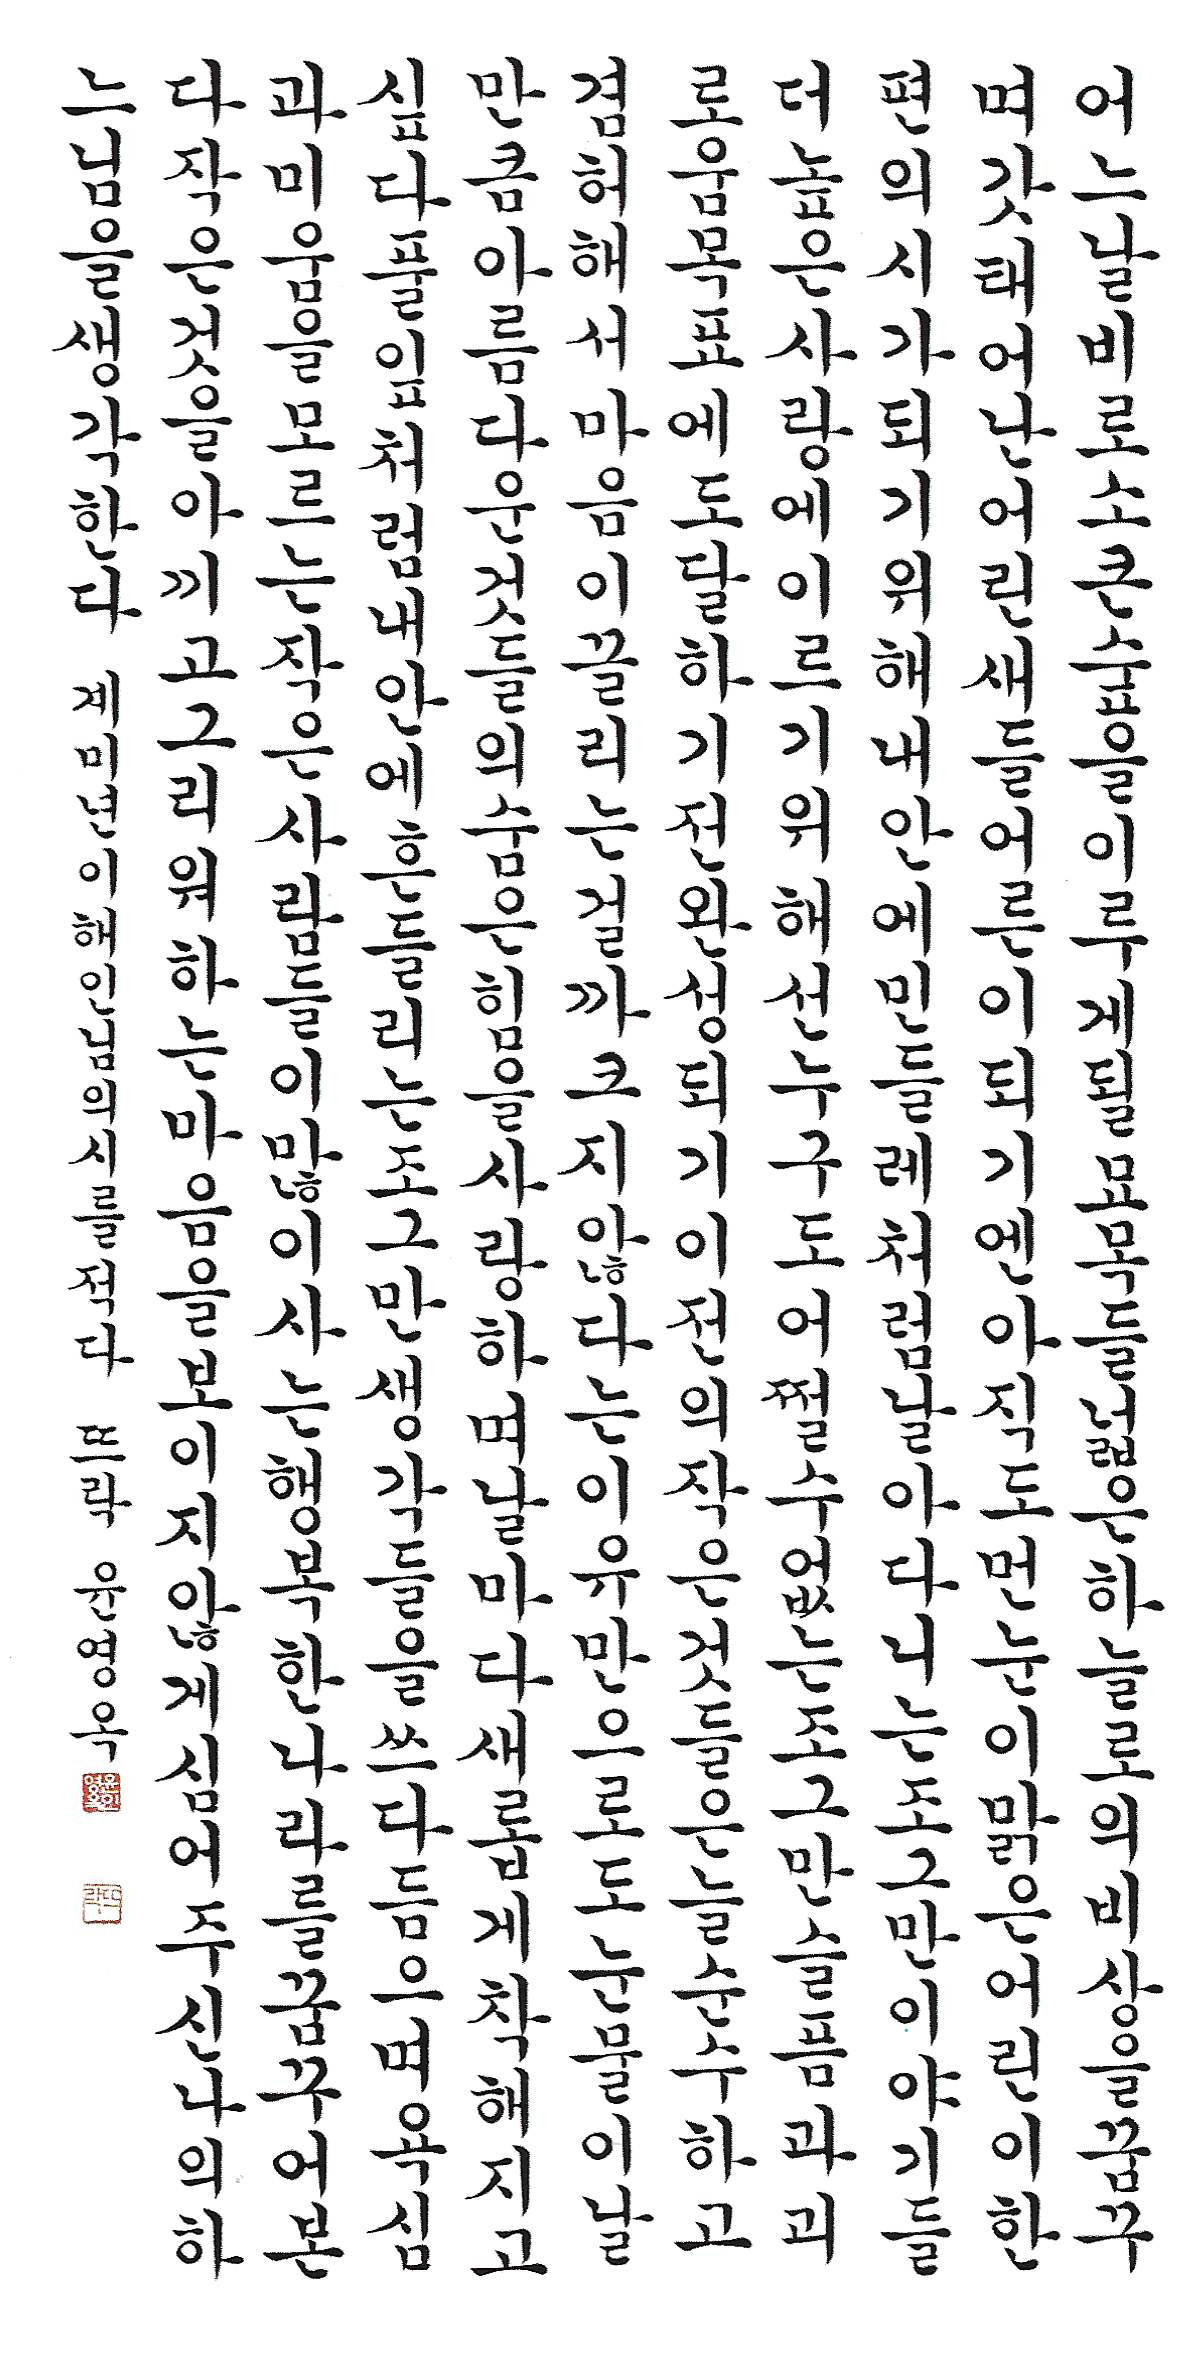 어느날비로소큰숲을이루게될묘목들넓은하늘로의비상을꿈꾸
며갓태어난어린새들어른이되기엔아직도먼눈이맑은어린이한
편의시가되기위해내안에민들레처럼날아다니는조그만이야기들
더높은사랑에이르기위해선누구도어쩔수없는조그만슬픔과괴
로움목표에도달하기전완성되기이전의작은것들은늘순수하고
겸허해서마음이끌리는걸까크지않다는이유만으로도눈물이날
만큼아름다운것들의숨은힘을사랑하며날마다새롭게착해지고
싶다풀잎처럼내안에흔들리는조그만생각들을쓰다듬으며욕심
과미움을모르는작은사람들이많이사는행복한나라를꿈꾸어본
다작은것을아끼고그리워하는마음을보이지않게심어주신나의하
느님을생각한다 계미년이해인님의시를적다 뜨락 윤영옥